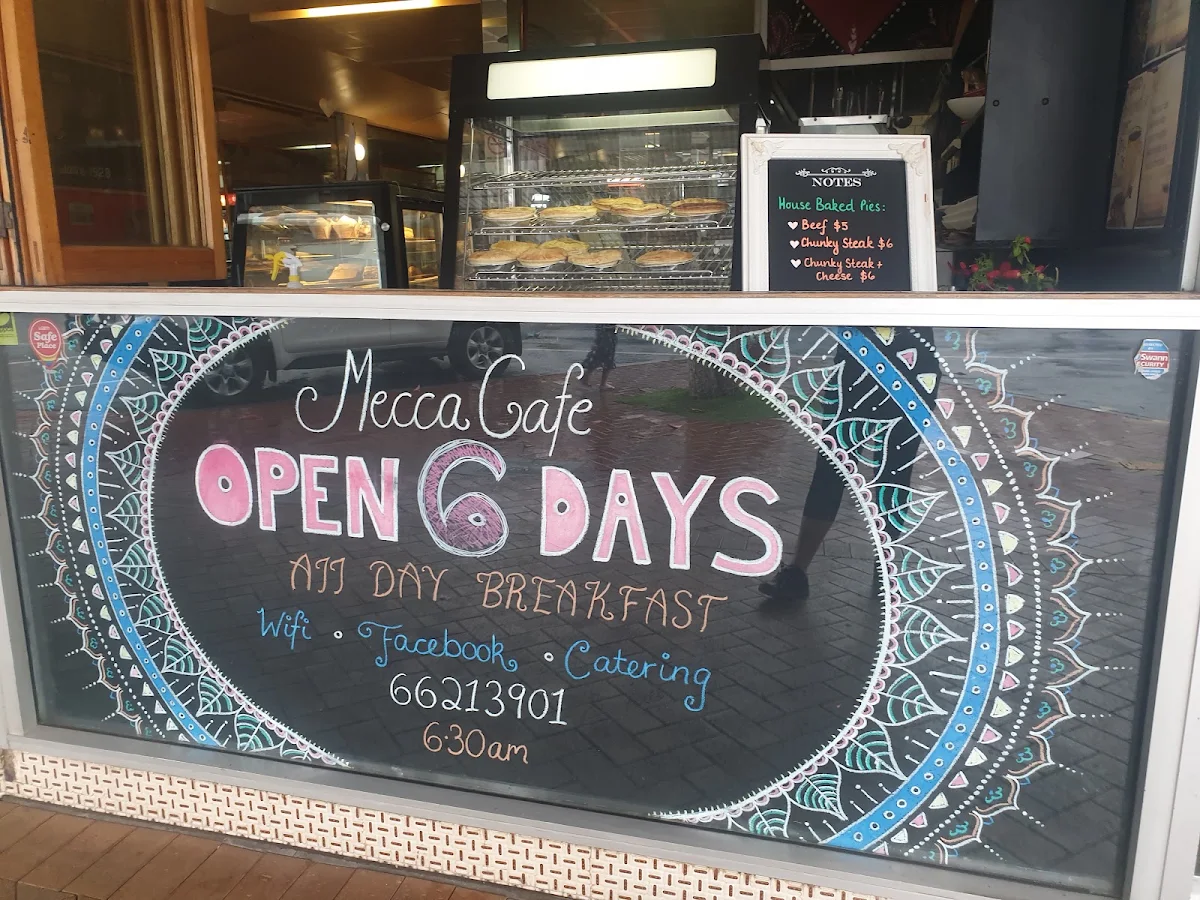 NOTES
House Baked Pies:
Beef $5
Chunky Steak $6
Chunky Steak +
Cheese $6
Safe
Place
Swann
CURITY
Mecca Cafe
OPEN 6 DAYS
All DAY BREAKFAST
Wifi • Facebook • Catering
66213901
6.30am